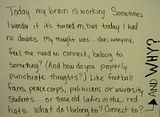 Today my brain is working. Sometimes
I wonder if it's turned on, but today I had
no doubts. My thought was... does everyone
feel the need to connect, belong to
something? (And how do you properly
punctuate thoughts?) Like football
fans, peace corps, politicians or university
students... or those old ladies in the red
hats. What do I belong to? Connect to?
and WHY?